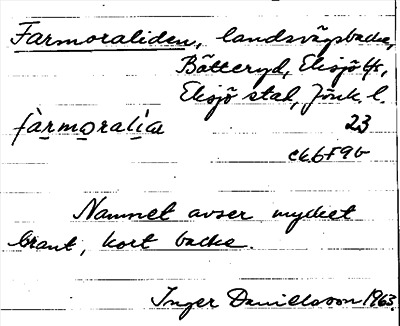 Farmoraliden, landsvägsbacke,
Bötteryd, Eksjö lfs,
Eksjö stad, Jönk. l.
fàrmoralía 23
c6bF9b
Namnet avser mycket
brant, kort backe.
Inger Danielsson 1963.